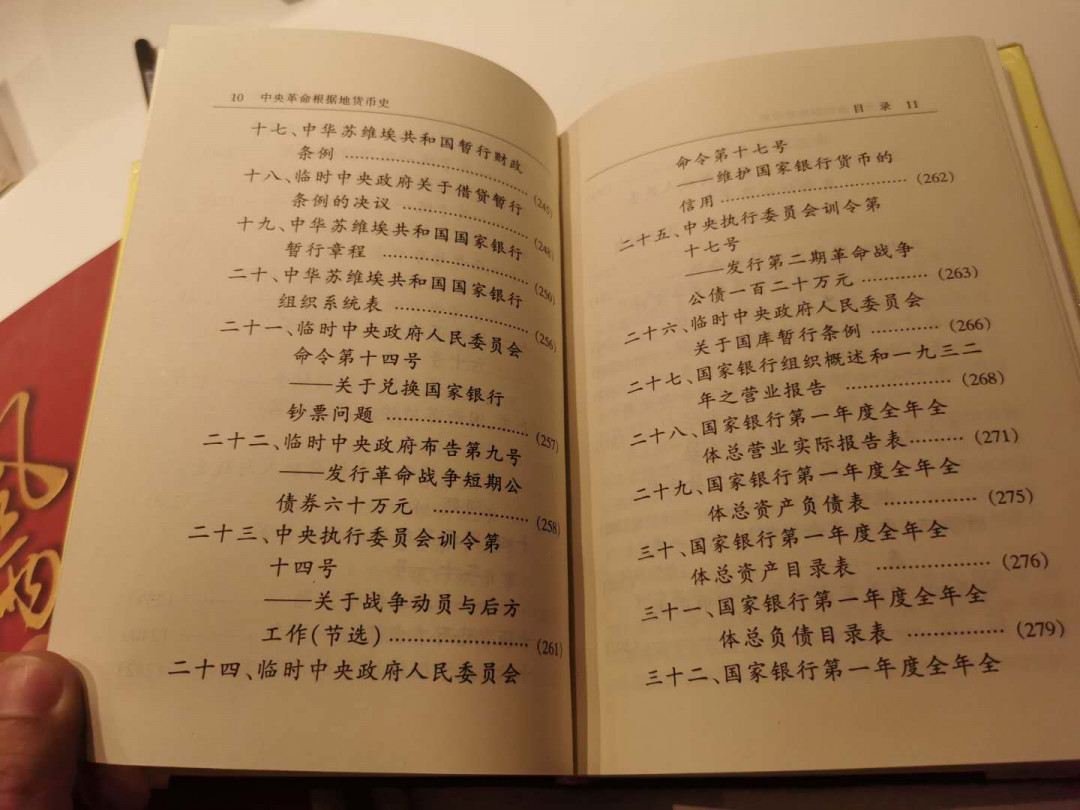 10 中央革命根据地货币史
十七、中华苏维埃共和国暂行财政
条例 ……………………… (245)
十八、临时中央政府关于借贷暂行
条例的决议 ……………… (248)
十九、中华苏维埃共和国国家银行
暂行章程 ………………… (250)
二十、中华苏维埃共和国国家银行
组织系统表 ……………… (256)
二十一、临时中央政府人民委员会
命令第十四号
——关于兑换国家银行
钞票问题 ……………… (257)
二十二、临时中央政府布告第九号
——发行革命战争短期公
债券六十万元 ………… (258)
二十三、中央执行委员会训令第
十四号
——关于战争动员与后方
工作(节选) …………… (261)
二十四、临时中央政府人民委员会
目录 11
命令第十七号
——维护国家银行货币的
信用 …………………… (262)
二十五、中央执行委员会训令第
十七号
——发行第二期革命战争
公债一百二十万元 …… (263)
二十六、临时中央政府人民委员会
关于国库暂行条例 ……… (266)
二十七、国家银行组织概述和一九三二
年之营业报告 ………… (268)
二十八、国家银行第一年度全年全
体总营业实际报告表 …… (271)
二十九、国家银行第一年度全年全
体总资产负债表 ………… (275)
三十、国家银行第一年度全年全
体总资产目录表 ………… (276)
三十一、国家银行第一年度全年全
体总负债目录表 ………… (279)
三十二、国家银行第一年度全年全